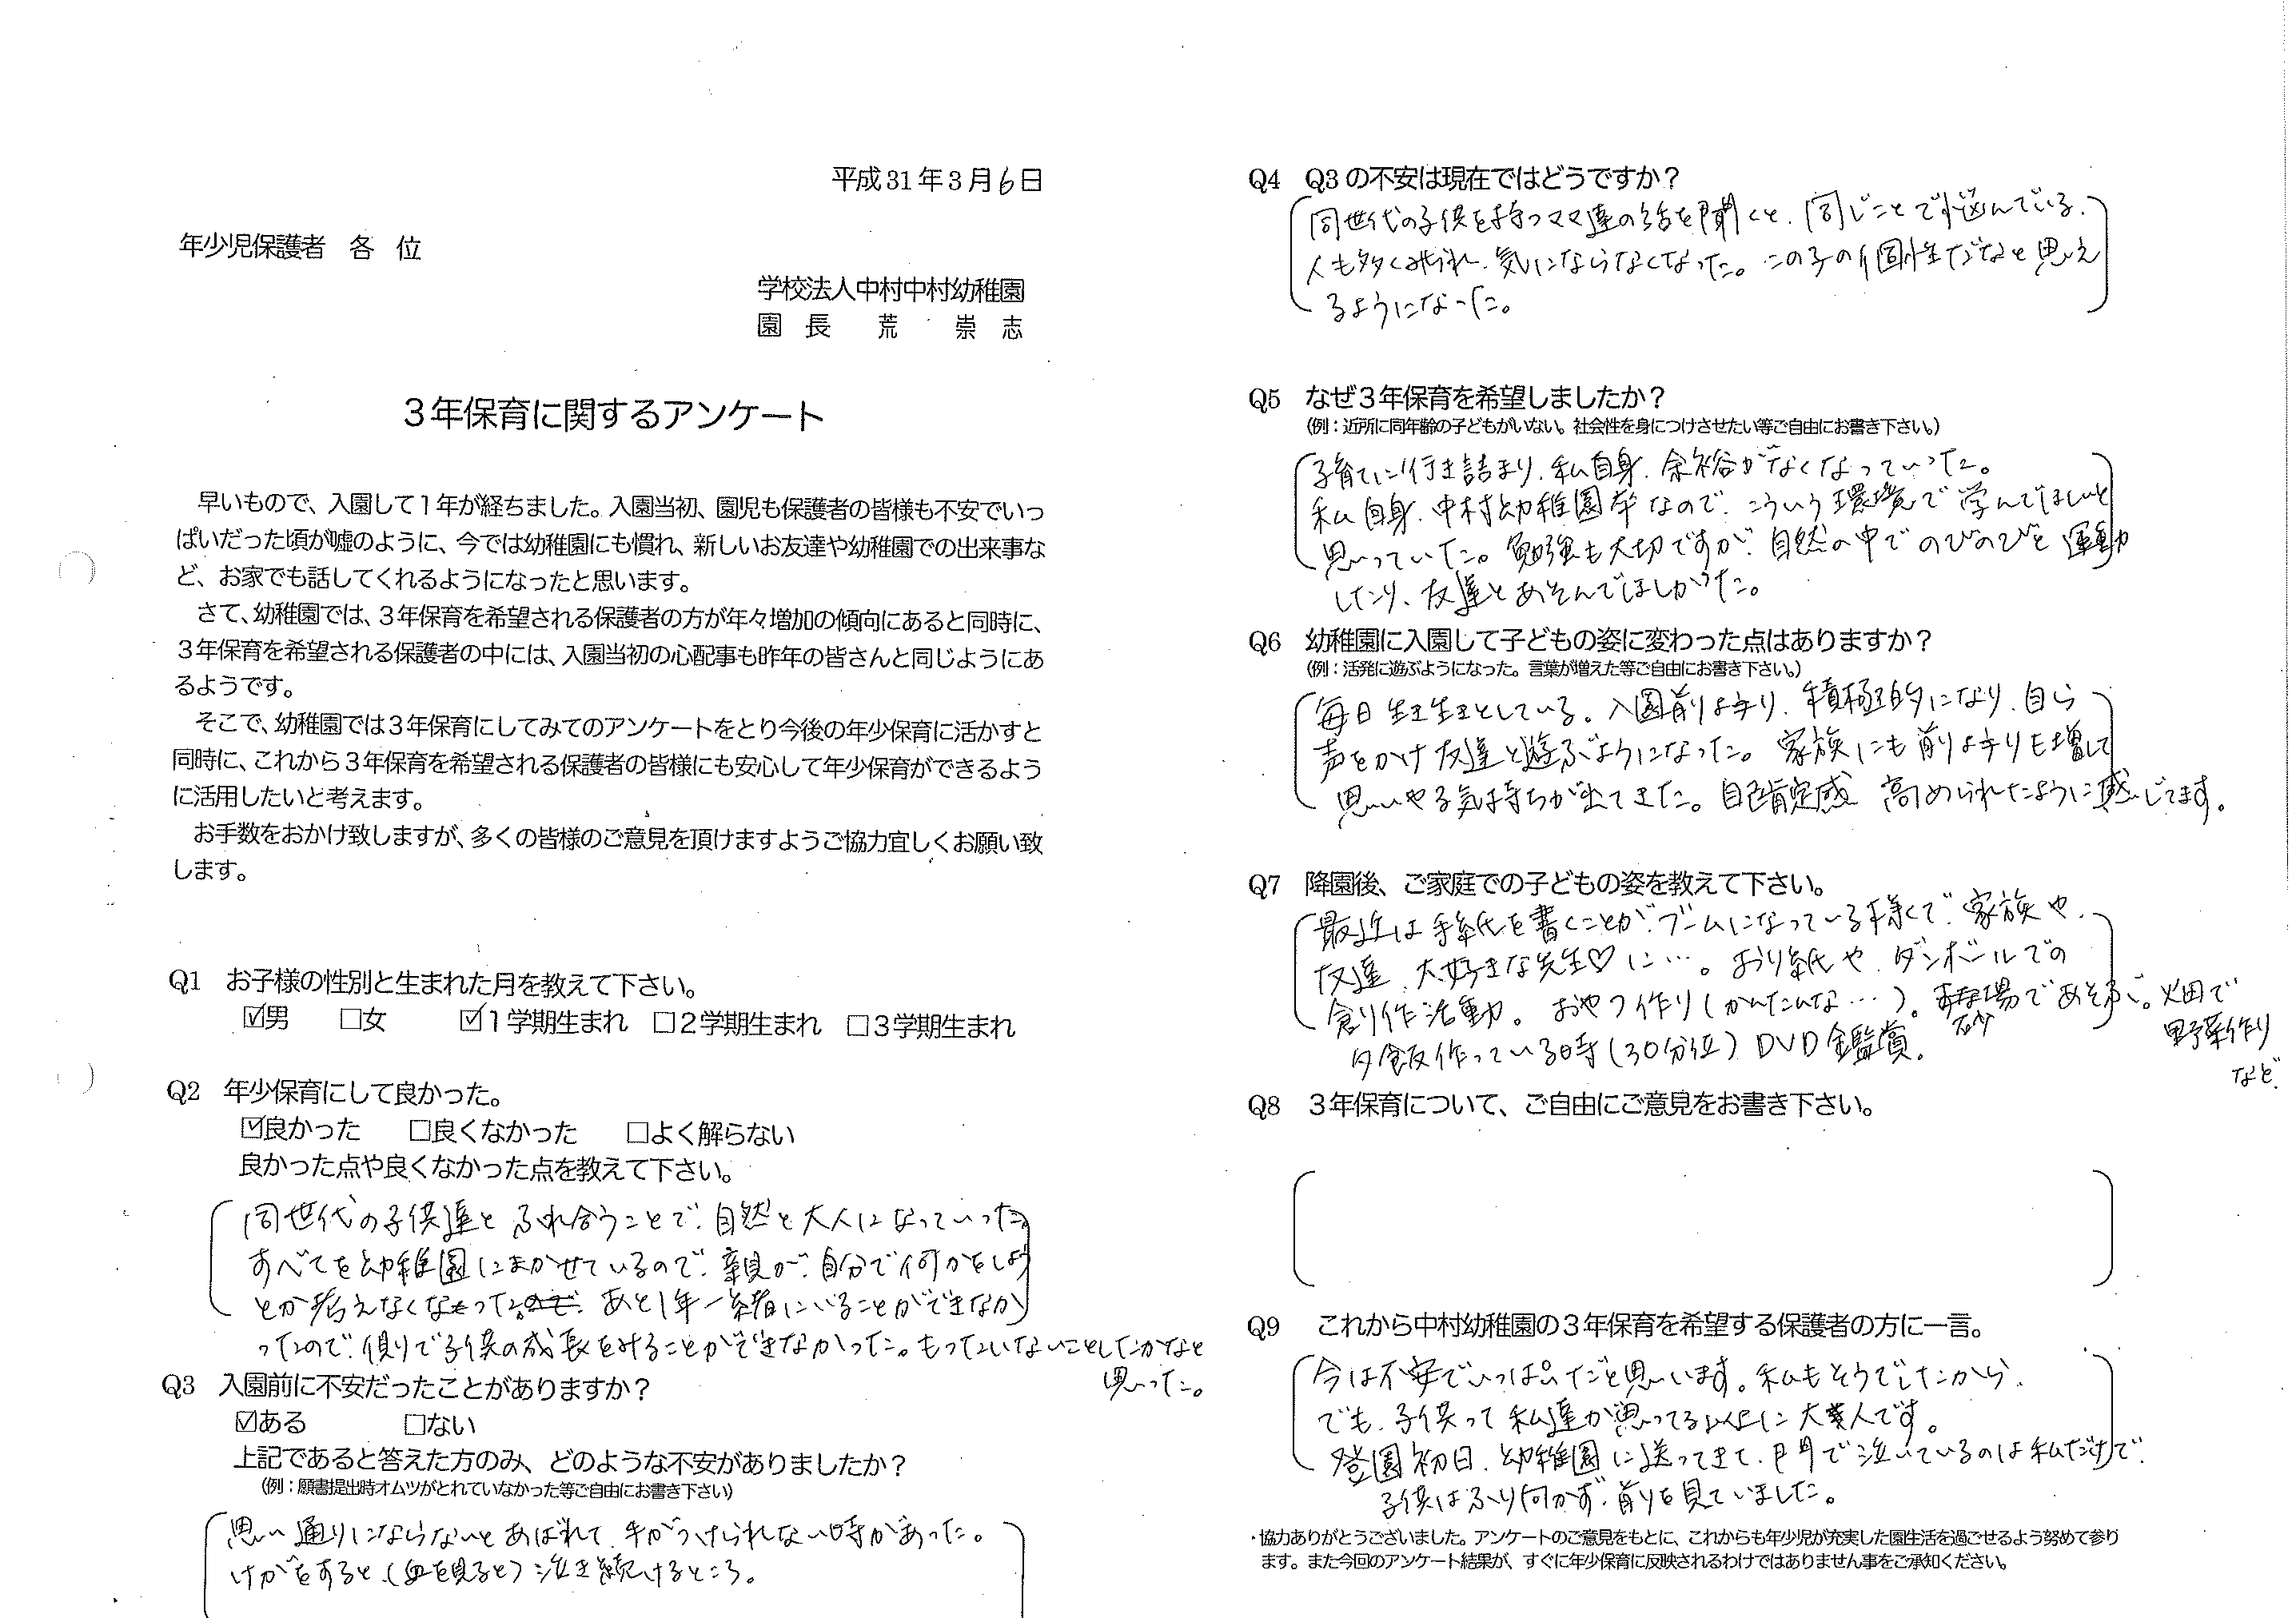 平成31年3月6日
年少児保護者 各 位
学校法人中村中村幼稚園
園 長 荒 崇 志
3年保育に関するアンケート
早いもので、入園して1年が経ちました。入園当初、園児も保護者の皆様も不安でいっ
ぱいだった頃が嘘のように、今では幼稚園にも慣れ、新しいお友達や幼稚園での出来事な
ど、お家でも話してくれるようになったと思います。
さて、幼稚園では、3年保育を希望される保護者の方が年々増加の傾向にあると同時に、
3年保育を希望される保護者の中には、入園当初の心配事も昨年の皆さんと同じようにあ
るようです。
そこで、幼稚園では3年保育にしてみてのアンケートをとり今後の年少保育に活かすと
同時に、これから3年保育を希望される保護者の皆様にも安心して年少保育ができるよう
に活用したいと考えます。
お手数をおかけ致しますが、多くの皆様のご意見を頂けますようご協力宜しくお願い致
します。
Q1 お子様の性別と生まれた月を教えて下さい。
☑男 □女 ☑1学期生まれ □2学期生まれ □3学期生まれ
Q2 年少保育にして良かった。
☑良かった □良くなかった □よく解らない
良かった点や良くなかった点を教えて下さい。
同世代の子供達とふれ合うことで、自然と大人になっていった。
すべてを幼稚園にまかせているので、親が、自分で何かをしよう
とか考えなくなった。あと1年一緒にいることができなか
ったので、側で子供の成長をみることができなかった。もったいないことしたかなと
思った。
Q3 入園前に不安だったことがありますか？
☑ある □ない
上記であると答えた方のみ、どのような不安がありましたか？
（例：願書提出時オムツがとれていなかった等ご自由にお書き下さい）
思い通りにならないとあばれて、手がつけられない時があった。
けがをすると、（血を見ると）泣き続けるところ。
Q4 Q3の不安は現在ではどうですか？
同世代の子供を持つママ達の話を聞くと、同じことで悩んでいる、
人も多くみられ、気にならなくなった。この子の個性だなと思え
るようになった。
Q5 なぜ3年保育を希望しましたか？
（例：近所に同年齢の子どもがいない。社会性を身につけさせたい等ご自由にお書き下さい。）
子育てに行き詰まり、私自身、余裕がなくなっていった。
私自身、中村幼稚園卒なので、こういう環境で学んでほしいと
思っていた。勉強も大切ですが、自然の中でのびのびと運動
したり、友達とあそんでほしかった。
Q6 幼稚園に入園して子どもの姿に変わった点はありますか？
（例：活発に遊ぶようになった。言葉が増えた等ご自由にお書き下さい。）
毎日生き生きとしている。入園前より、積極的になり、自ら
声をかけ友達と遊ぶようになった。家族にも前よりも増して
思いやる気持ちが出てきた。自己肯定感 高められたように感じてます。
Q7 降園後、ご家庭での子どもの姿を教えて下さい。
最近は手紙を書くことが、ブームになっている様で、家族や、
友達、大好きな先生♡に…。おり紙や、ダンボールでの
創作活動。おやつ作り（かんたんな…）。砂場であそぶ。畑で
野菜作り
など。
夕飯作っている時（30分位）DVD鑑賞。
Q8 3年保育について、ご自由にご意見をお書き下さい。
Q9 これから中村幼稚園の3年保育を希望する保護者の方に一言。
今は不安でいっぱいだと思います。私もそうでしたから、
でも、子供って私達が思ってる以上に大人です。
登園初日、幼稚園に送ってきて、門で泣いているのは私だけで、
子供はふり向かず、前を見ていました。
・協力ありがとうございました。アンケートのご意見をもとに、これからも年少児が充実した園生活を過ごせるよう努めて参り
ます。また今回のアンケート結果が、すぐに年少保育に反映されるわけではありません事をご承知ください。